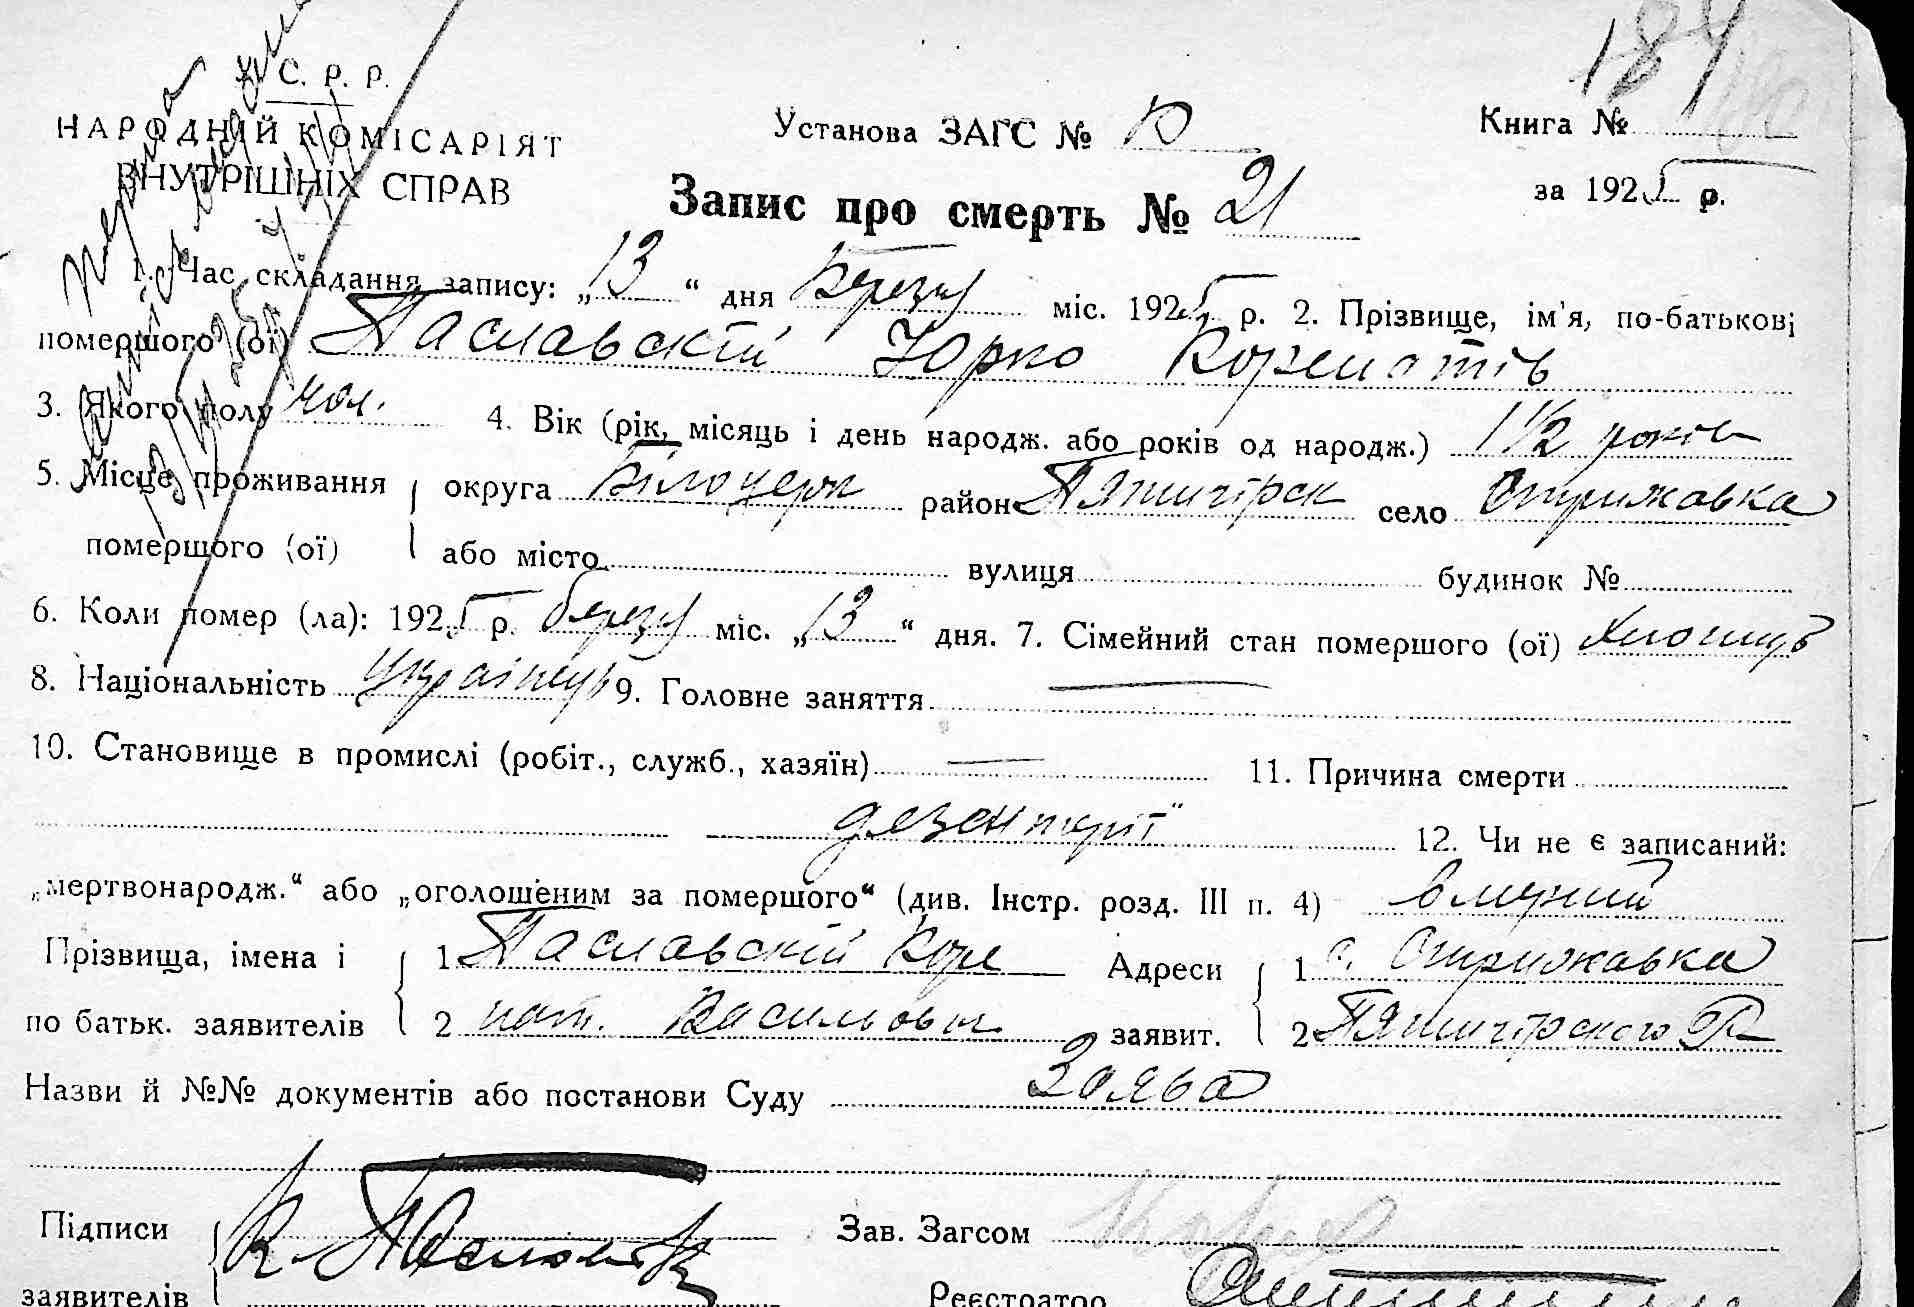 184
У. С. Р. Р.
НАРОДНІЙ КОМІСАРІЯТ
ВНУТРІШНІХ СПРАВ
Установа ЗАГС №
Книга №
за 1925 р.
Запис про смерть № 21
1. Час складання запису: „13“ дня Березня міс. 1925 р. 2. Прізвище, ім'я, по-батькові
помершого (ої) Паславскій Юрко Корнатів
3. Якого полу чол. 4. Вік (рік, місяць і день народж. або років од народж.) 1 1/2 років
5. Місце проживання округа Білоцерк район Пятигірск село Стрижавка
помершого (ої) або місто вулиця будинок №
6. Коли помер (ла): 1925 р. березня міс. „13“ дня. 7. Сімейний стан помершого (ої) хлопець
8. Національність Українець 9. Головне заняття —
10. Становище в промислі (робіт., служб., хазяїн) — 11. Причина смерти
дезентерії
12. Чи не є записаний:
„мертвонародж.“ або „оголошеним за помершого“ (див. Інстр. розд. III п. 4) вмерший
Прізвища, імена і 1 Паславскій Кор Адреси 1 с. Стрижавка
по батьк. заявителів 2 нат. Васильович заявит. 2 Пятигірского Р
Назви й №№ документів або постанови Суду Заява
Підписи Зав. Загсом
заявителів Реєстратор